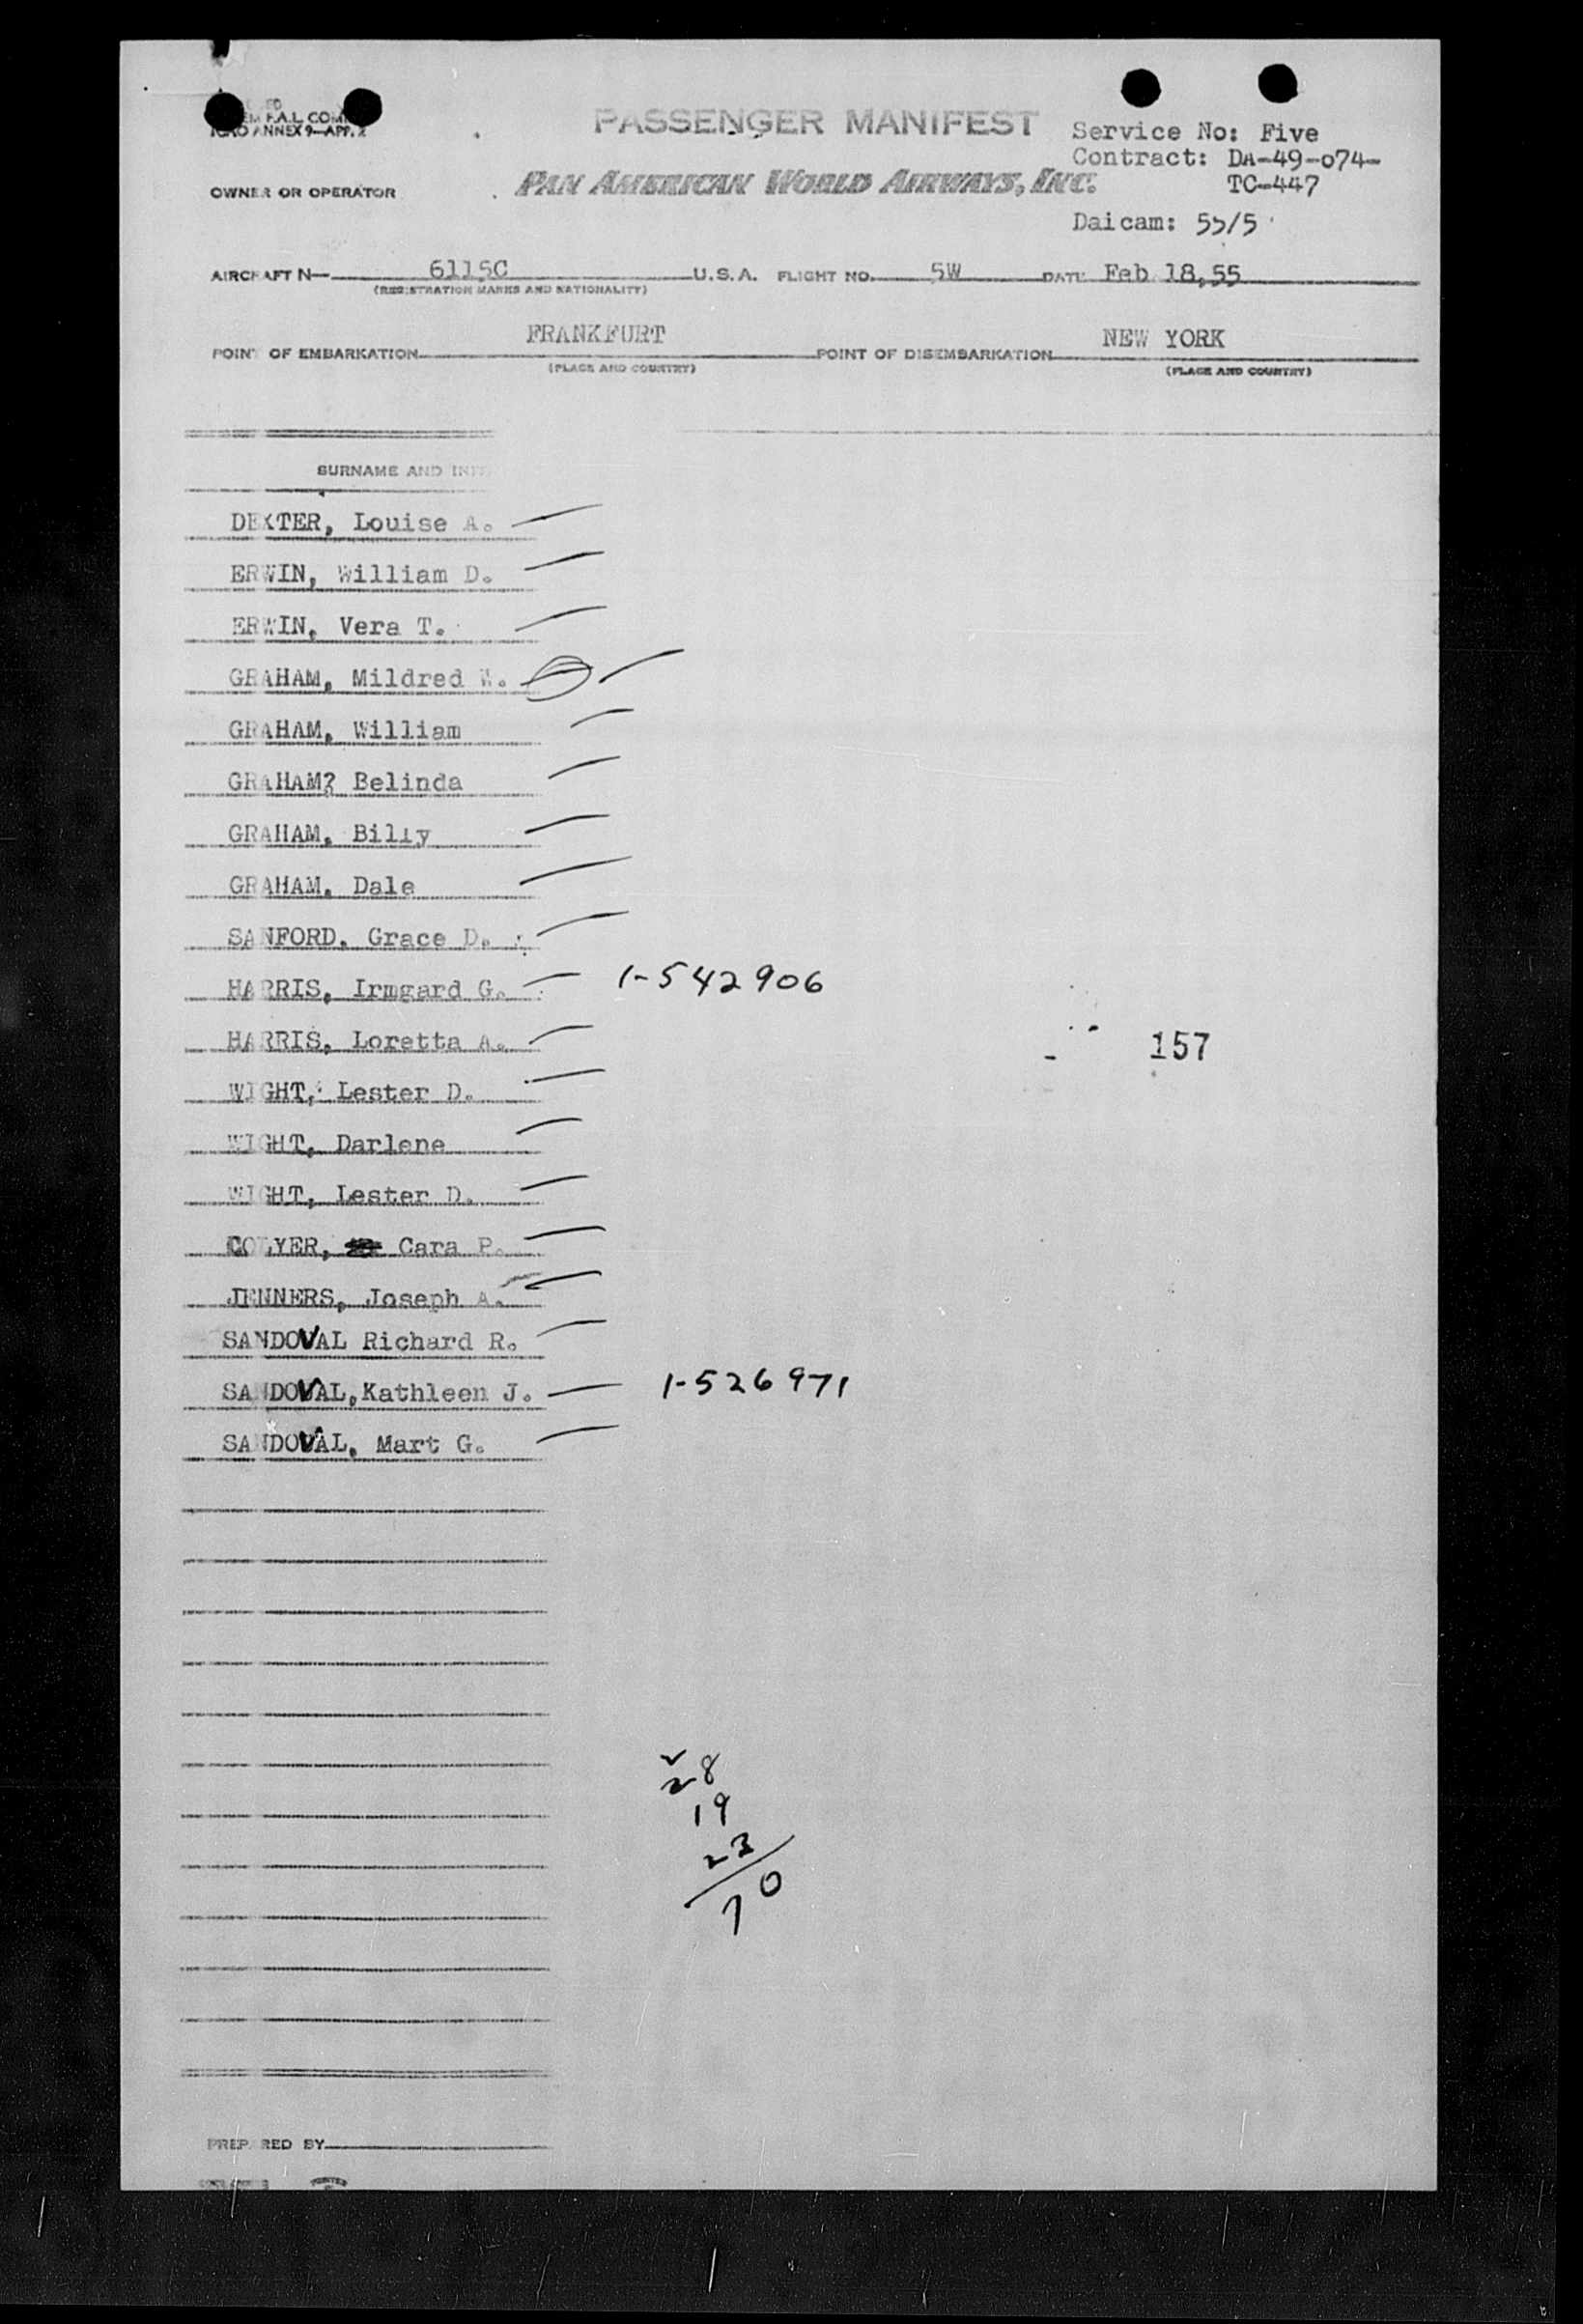 F.A.L. COM
ICAO ANNEX 9—APP. 2
PASSENGER MANIFEST
Service No: Five
Contract: DA-49-074-
TC-447
OWNER OR OPERATOR
PAN AMERICAN WORLD AIRWAYS, INC.
Daicam: 55/5
AIRCRAFT N— 6115C U.S.A. FLIGHT NO. 5W DATE Feb 18,55
(REGISTRATION MARKS AND NATIONALITY)
POINT OF EMBARKATION FRANKFURT POINT OF DISEMBARKATION NEW YORK
(PLACE AND COUNTRY) (PLACE AND COUNTRY)
SURNAME AND
DEXTER, Louise A.
ERWIN, William D.
ERWIN, Vera T.
GRAHAM, Mildred W.
GRAHAM, William
GRAHAM? Belinda
GRAHAM, Billy
GRAHAM, Dale
SANFORD, Grace D.
HARRIS, Irmgard G. 1-542906
HARRIS, Loretta A. 157
WIGHT, Lester D.
WIGHT, Darlene
WIGHT, Lester D.
COLYER, Cara P.
JENNERS, Joseph A.
SANDOVAL Richard R.
SANDOVAL, Kathleen J. 1-526971
SANDOVAL, Mart G.
28
19
23
70
PREPARED BY